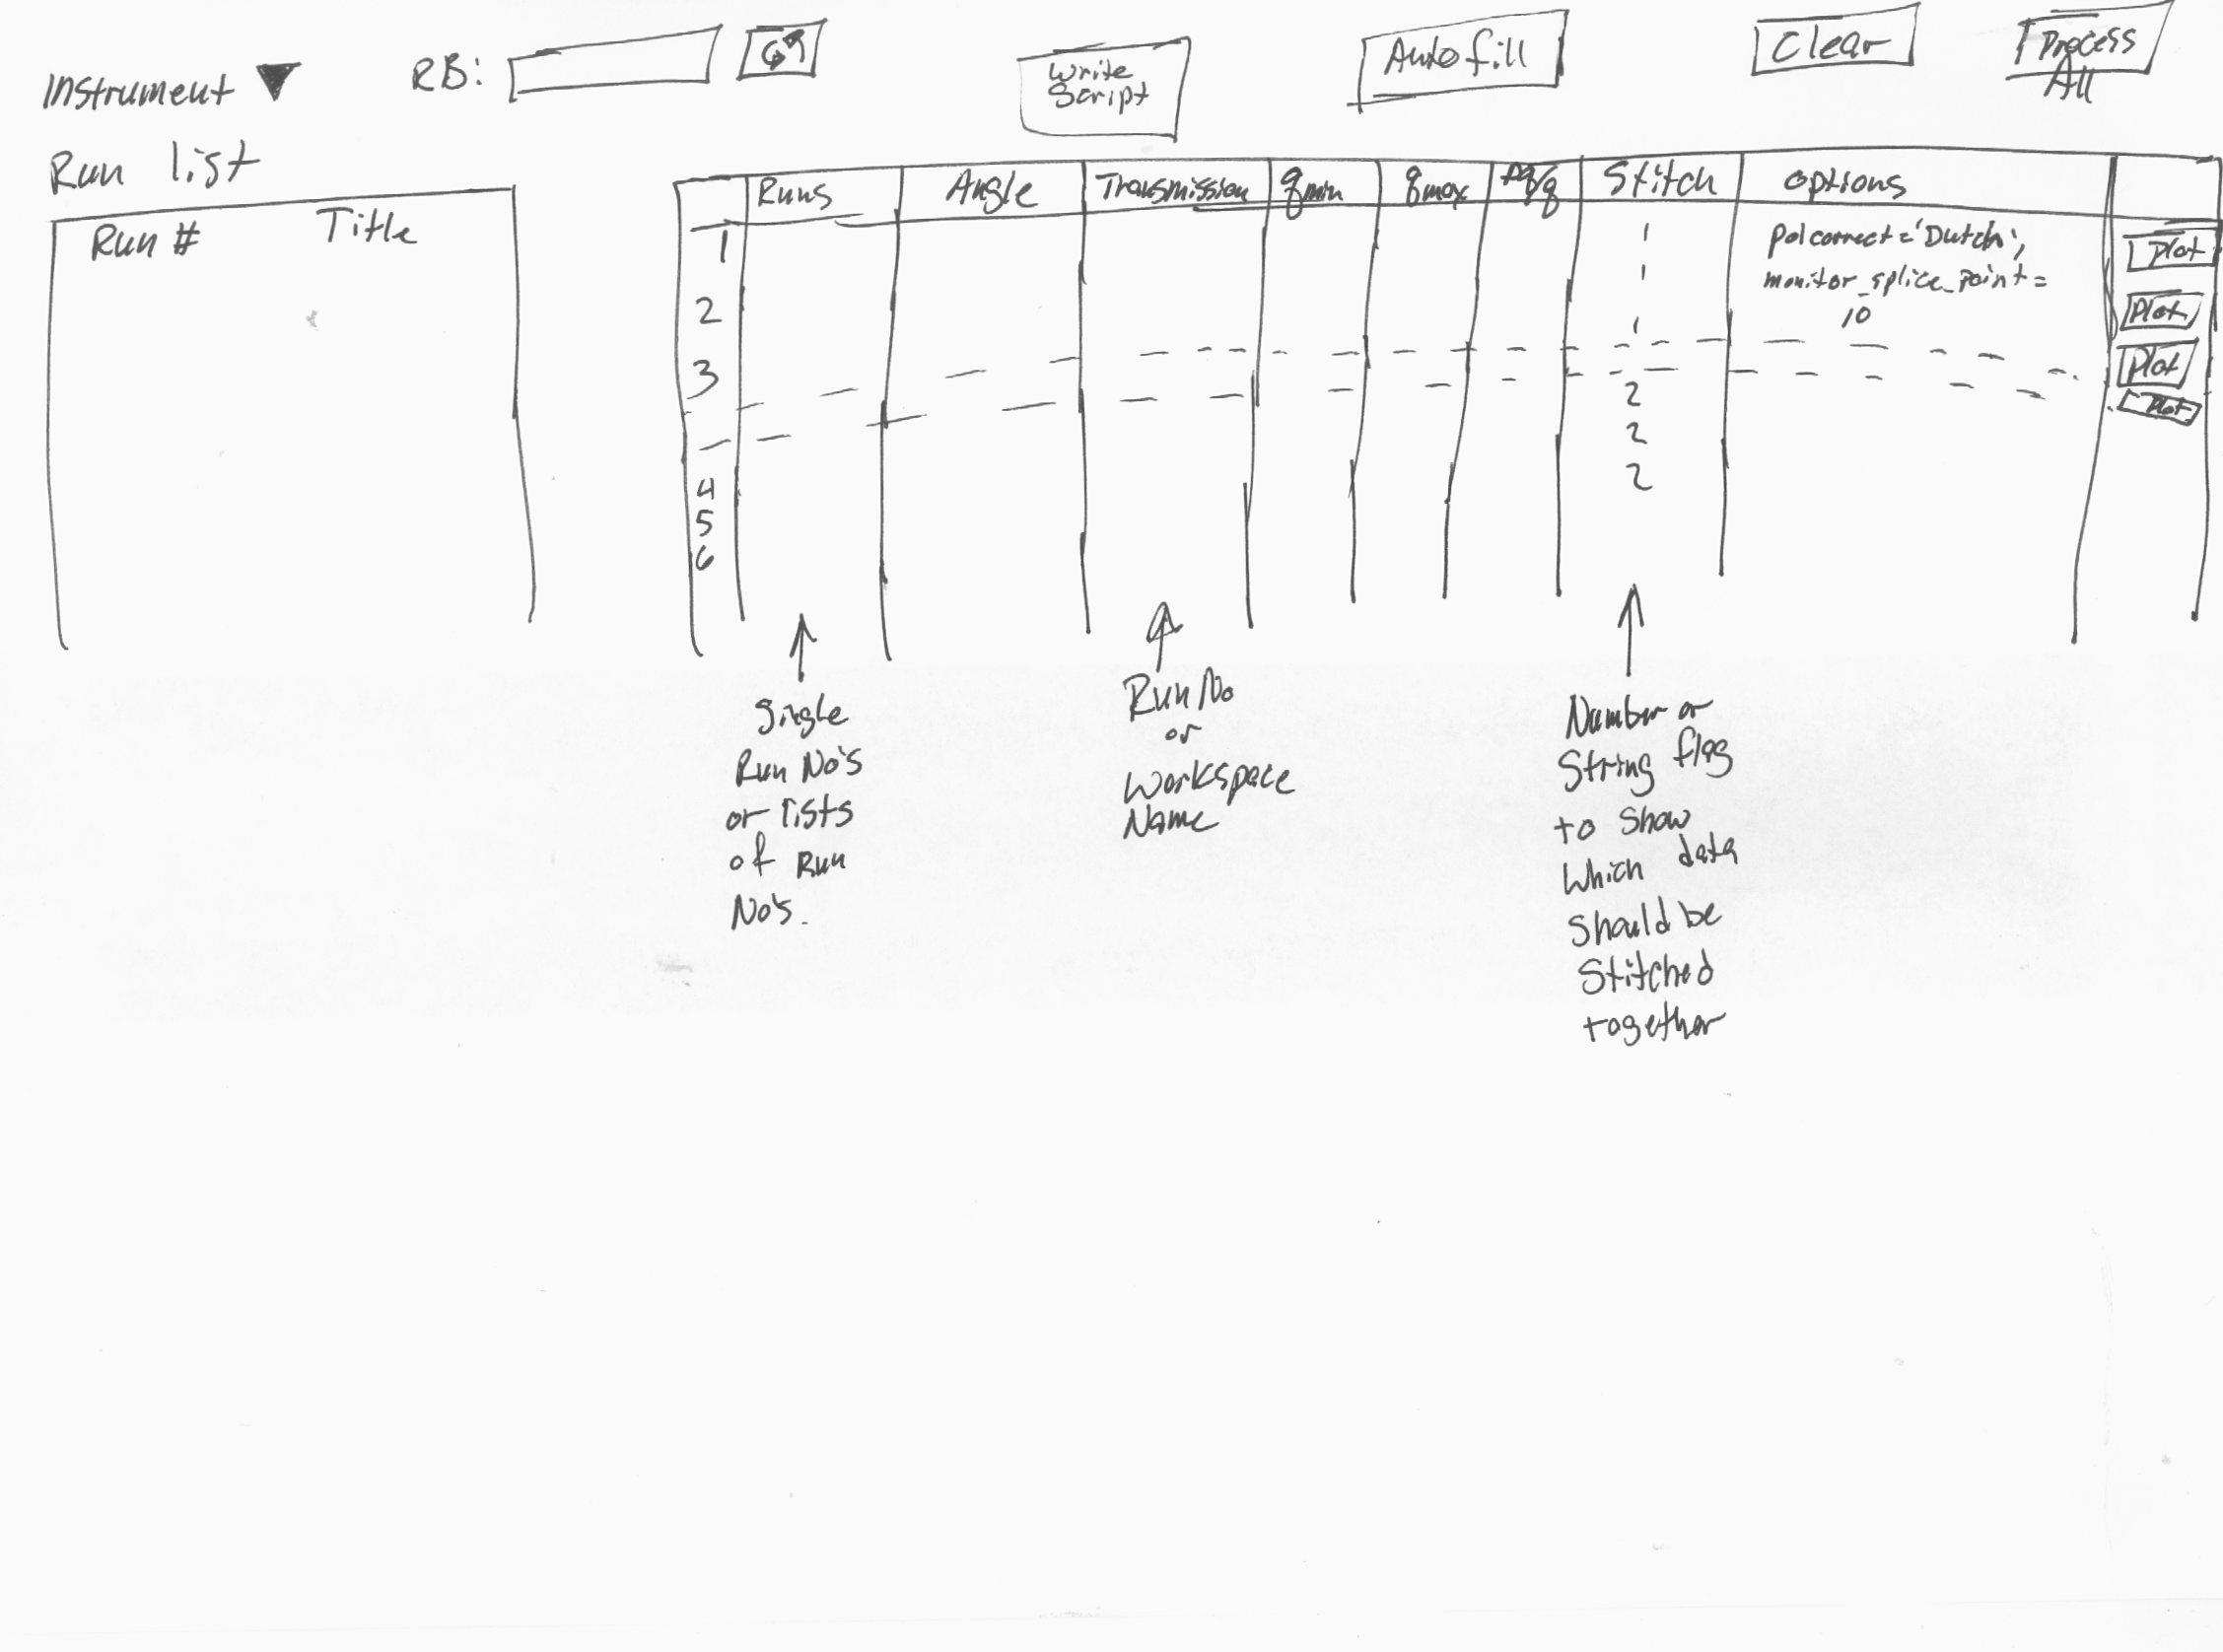 Instrument ▼ RB:
Write
Script
Autofill
Clear
Process
All
Run list
Run # Title
Runs Angle Transmission qmin qmax Δq/q Stitch options
1
2
3
4
5
6
1
1
1
2
2
2
Polcorrect='Dutch',
monitor_splice_point=
10
Plot
Plot
Plot
Plot
Single
Run No's
or lists
of Run
No's.
Run No
or
Workspace
Name
Number or
String flag
to show
which data
should be
Stitched
together